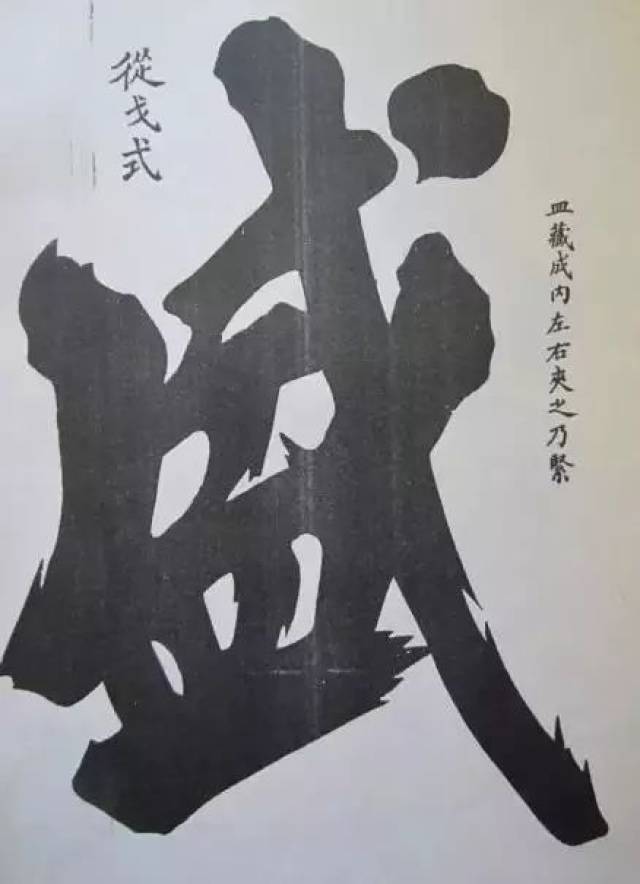 從戈式
盛
皿藏成内左右夾之乃緊